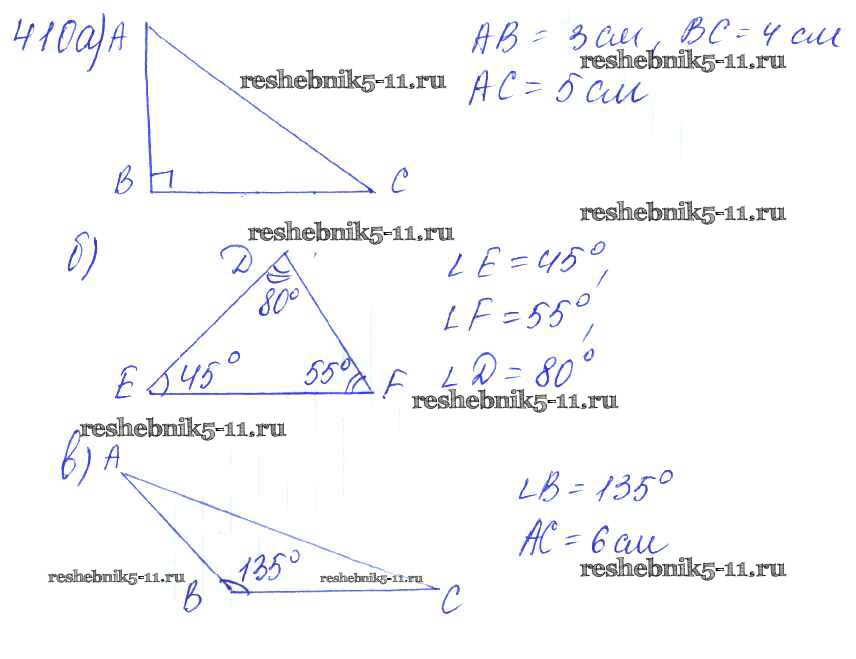 410а) A AB = 3 см, BC = 4 см
reshebnik5-11.ru reshebnik5-11.ru
AC = 5 см
B C
reshebnik5-11.ru
reshebnik5-11.ru
б) D ∠E = 45°,
80°
∠F = 55°,
E 45° 55° F ∠D = 80°
reshebnik5-11.ru
reshebnik5-11.ru
в) A
∠B = 135°
AC = 6 см
135°
reshebnik5-11.ru reshebnik5-11.ru reshebnik5-11.ru
B C